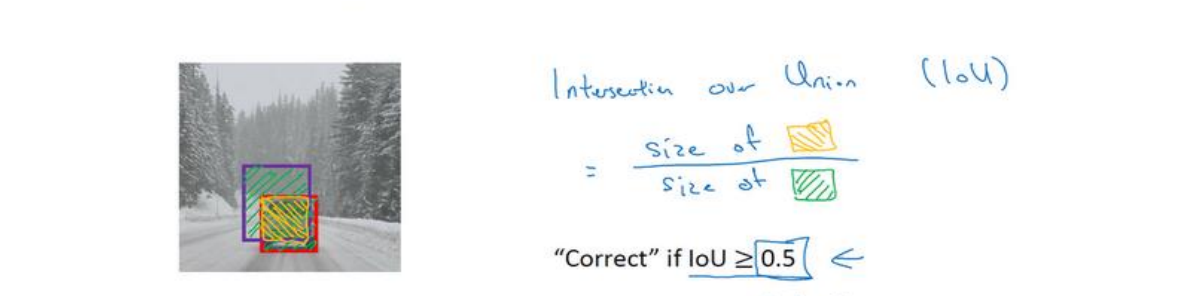 Intersection over Union (IoU)
= size of
size of
“Correct” if IoU ≥ 0.5 ←